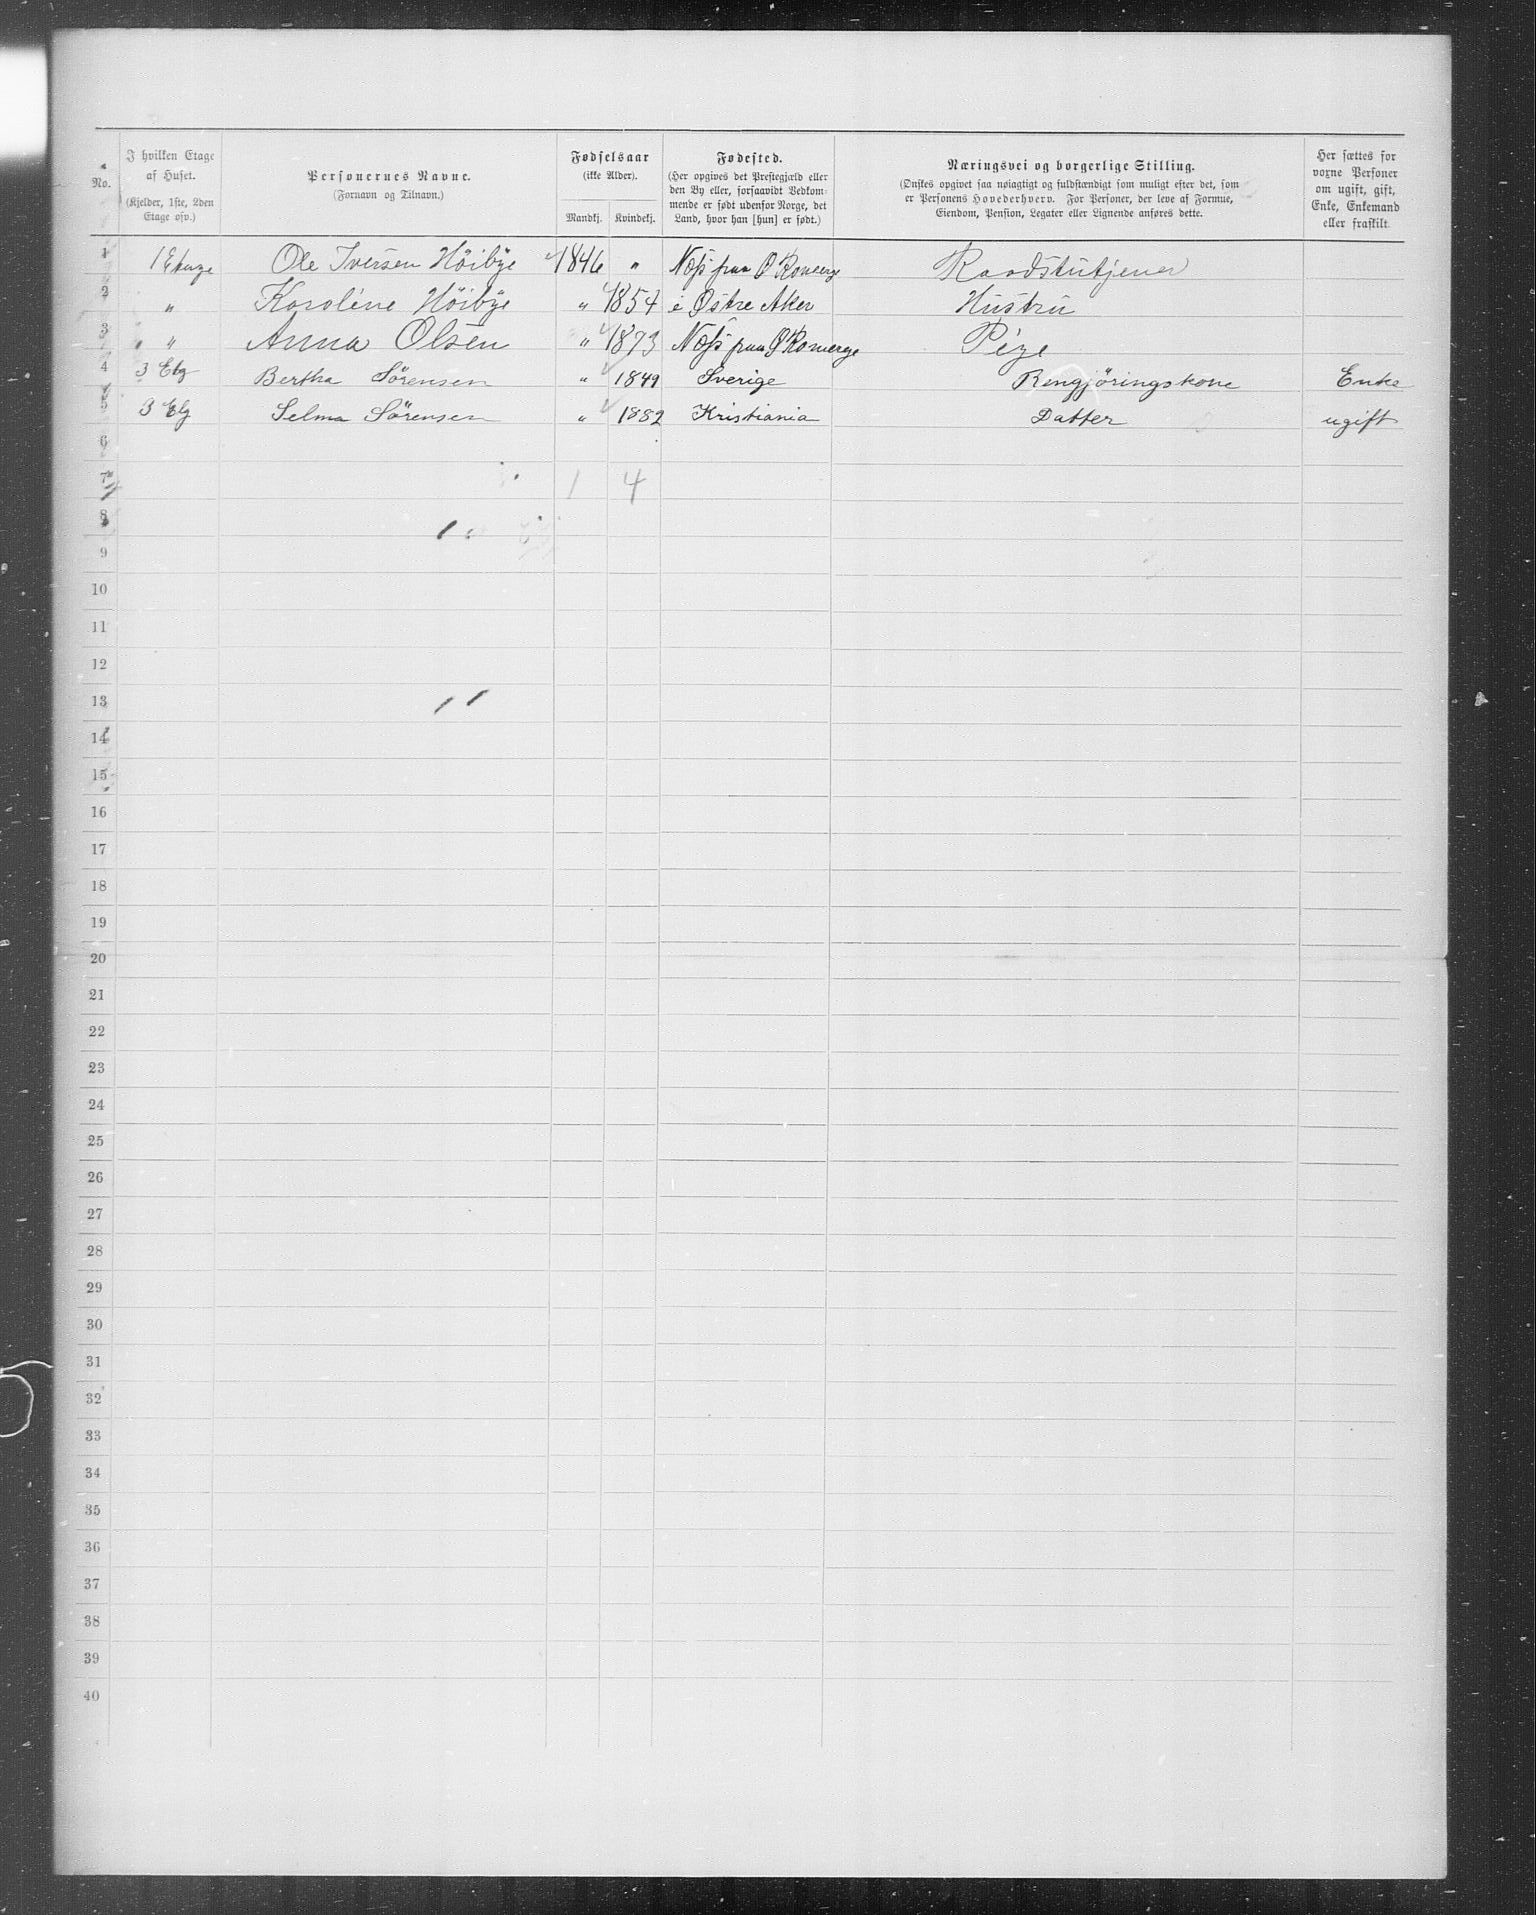 No.
I hvilken Etage
af Huset.
(Kjelder, 1ste, 2den
Etage osv.)
Personernes Navne.
(Fornavn og Tilnavn.)
Fødselsaar
(ikke Alder).
Mandkj. Kvindekj.
Fødested.
(Her opgives det Prestegjæld eller
den By eller, forsaavidt Vedkom-
mende er født udenfor Norge, det
Land, hvor han [hun] er født.)
Næringsvei og borgerlige Stilling.
(Ønskes opgivet saa nøiagtigt og fuldstændigt som muligt efter det, som
er Personens Hovederhverv. For Personer, der leve af Formue,
Eiendom, Pension, Legater eller Lignende anføres dette.
Her sættes for
voxne Personer
om ugift, gift,
Enke, Enkemand
eller fraskilt.
1 1 Etauge Ole Iversen Höibÿe 1846 " Næs paa Ø Romerge Raadstutjener
2 " Karoline Höibÿe " 1854 i Østre Aker Hustru
3 " Anna Olsen " 1873 Næs paa Ø Romerge Pige
4 3 Etg Bertha Sörensen " 1849 Sverige Rengjöringskone Enke
5 3 Etg Selma Sörensen " 1882 Kristiania Datter ugift
6
7 1 4
8
9
10
11
12
13
14
15
16
17
18
19
20
21
22
23
24
25
26
27
28
29
30
31
32
33
34
35
36
37
38
39
40